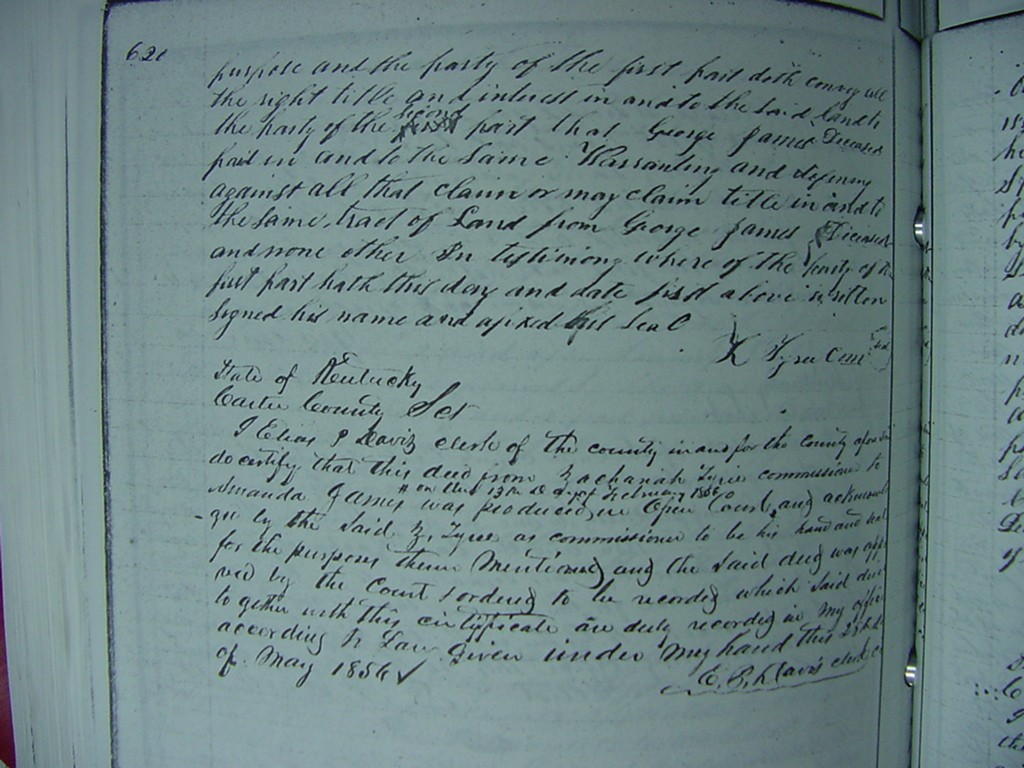 620
purpose and the party of the first part doth convey all
the right title and interest in and to the said land to
the party of the second part that George James Deceased
had in and to the same Warranting and defening
against all that claim or may claim title in and to
the same tract of Land from George James Deceased
and none other In testimony where of the party of the
first part hath this day and date first above written
signed his name and afixed his Seal
Z Tyree Com Seal
State of Kentucky
Carter County Sct
I Elias P Davis clerk of the county in and for the county afore
do certify that this deed from Zachariah Tyree commissioner to
Amanda James was produced in Open Court and acknowl
on this 13th Day of February 1856
ge by the said Z. Tyree as commissioner to be his hand and seal
for the purposes therein Mentioned and the said deed was app
ved by the Court & ordered to be recorded which said deed
to gether with this certificate are duly recorded in my office
according to Law Given under my hand this
of May 1856
E. P. Davis clerk